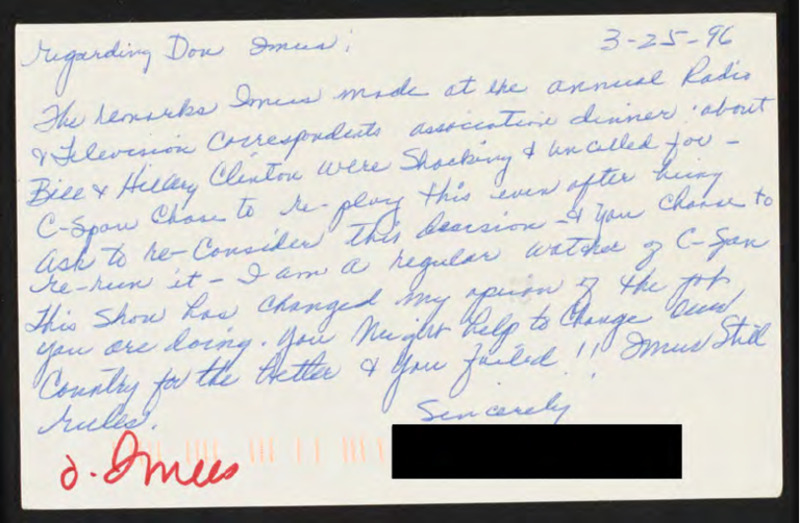 regarding Don Imus; 3-25-96
The remarks Imus made at the annual Radio
& Television Correspondents association dinner about
Bill & Hillary Clinton were Shocking & uncalled for -
C-Span Chose to re-play this even after being
ask to re-Consider this decision - & you Choose to
re-run it - I am a regular watcher of C-Span
This Show has changed my opinion of the job
you are doing. You might help to Change our
Country for the better & you failed!! Imus Still
rules.
Sincerely
d. Imus